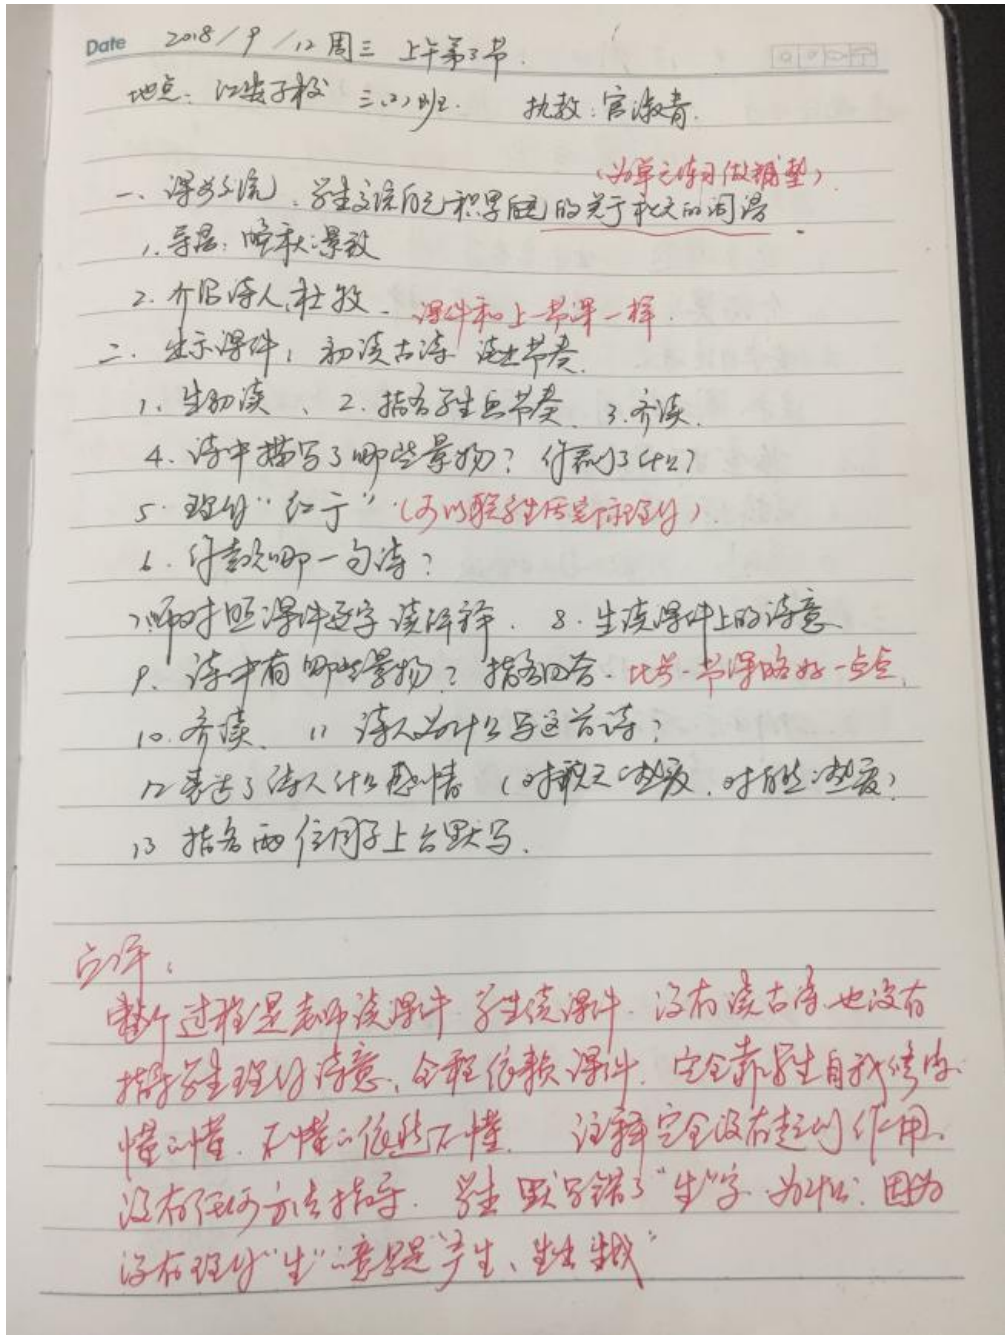 Date 2018/9/12 周三 上午第3节.
地点: 江安子校 三(2)班. 执教:官淑青.
(为单元练习做铺垫)
一、课前交流:学生交流自己积累的关于秋天的词语.
1、导入:晚秋景致
2. 介绍诗人杜牧. 课件和上一节课一样.
二、出示课件:初读古诗 读出节奏.
1、生初读、2.指名学生画节奏. 3.齐读.
4、诗中描写了哪些景物?你看到了什么?
5.理解“红于”(可以联系学生生活实际理解)
6.你喜欢哪一句诗?
7.师对照课件逐字读解释. 8.生读课件上的诗意
9、诗中有哪些景物?指名回答. 比第一节课略好一点点.
10.齐读、11 诗人为什么写这首诗?
12 表达了诗人什么感情(对秋天的热爱.对自然的热爱)
13 指名两位同学上台默写.
点评:
整个过程是老师读课件 学生读课件.没有读古诗也没有
指导学生理解诗意,全程依赖课件.完全靠学生自我
懂的懂.不懂的依然不懂. 注释完全没有起到作用.
没有任何方法指导. 学生默写错了“生”字.为什么:因为
没有理解“生”的意思是“产生、生成”